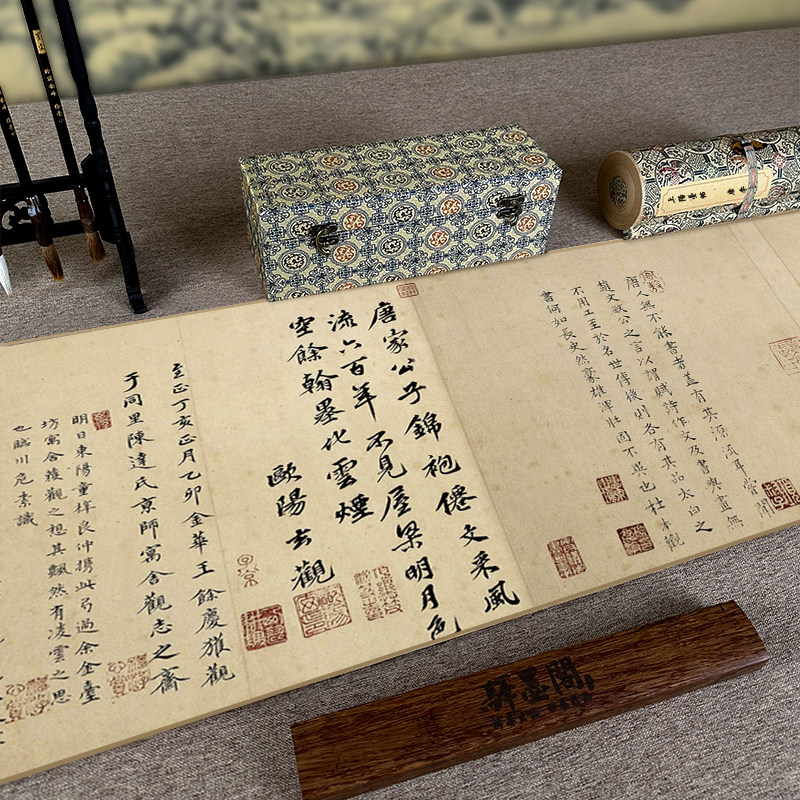 上陽臺帖
唐人無不能書者蓋有其源流耳嘗聞
趙文敏公之言以謂賦詩作文及書與畫無
不用工至於名世傳後則各有其品太白之
書何如長史然豪雄渾壯固不異也杜本觀
唐家公子錦袍僊文采風
流六百年不見屋梁明月色
空餘翰墨化雲煙
歐陽玄觀
至正丁亥正月乙卯金華王餘慶獲觀
于同里陳達氏京師寓舍觀志之齋
明日東陽童梓良沖攜此弓過余金臺
坊寓舍複觀之想其飄然有凌雲之思
也臨川危素識
軒墨閣